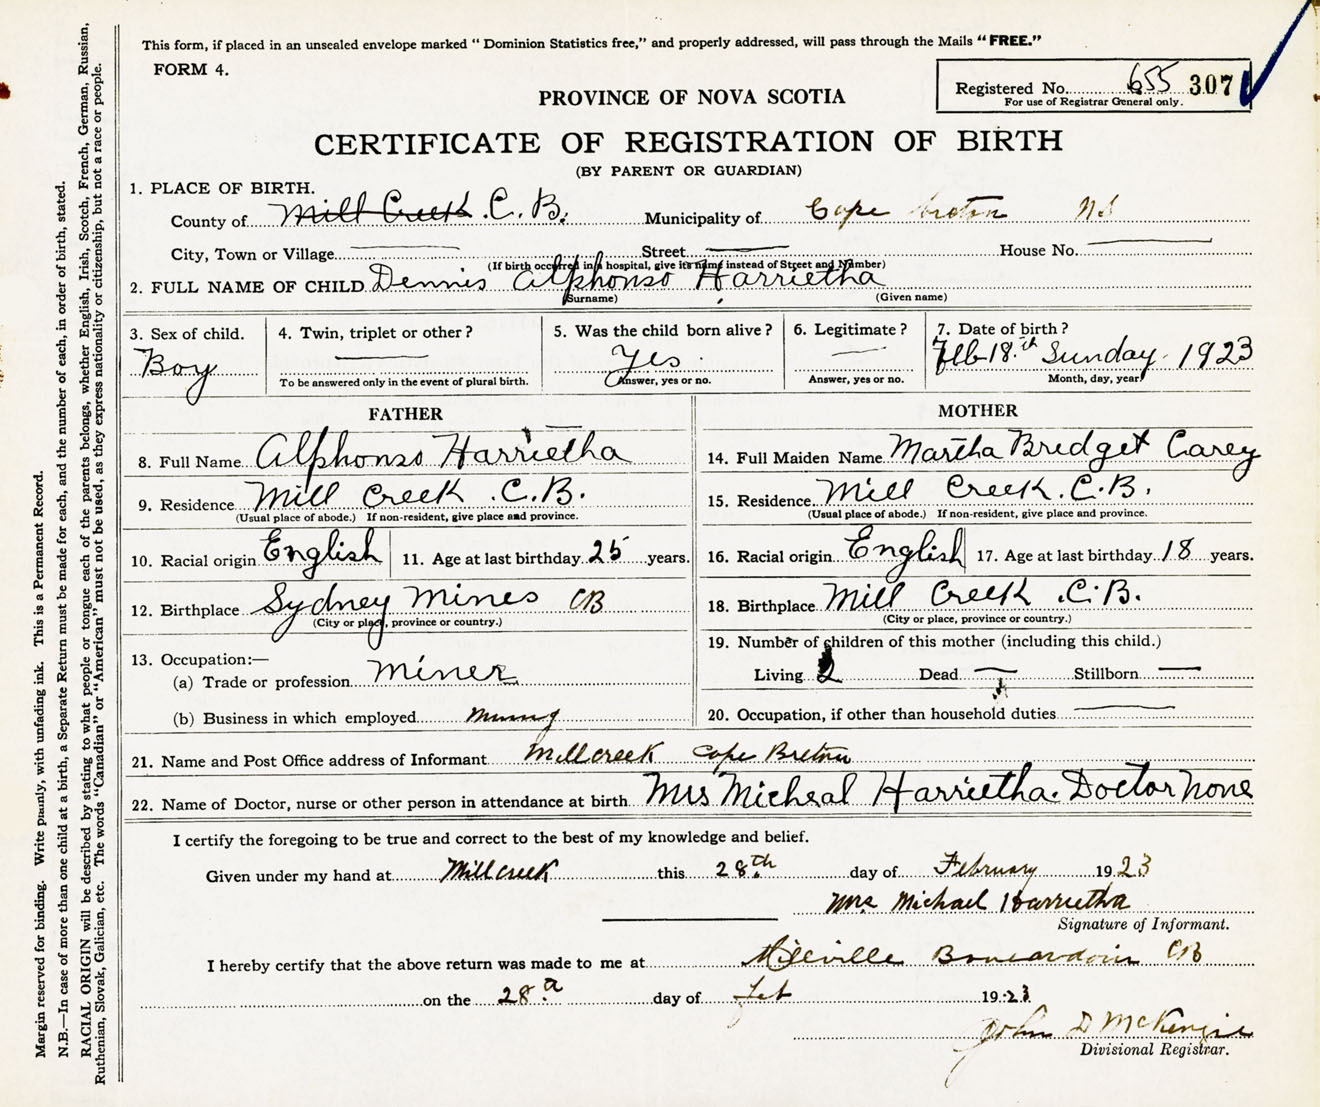 This form, if placed in an unsealed envelope marked "Dominion Statistics free," and properly addressed, will pass through the Mails "FREE."
FORM 4.
Registered No. 655 307
For use of Registrar General only.
PROVINCE OF NOVA SCOTIA
CERTIFICATE OF REGISTRATION OF BIRTH
(BY PARENT OR GUARDIAN)
1. PLACE OF BIRTH.
County of Mill Creek C. B. Municipality of Cape Breton N.S
City, Town or Village Street House No.
(If birth occurred in a hospital, give its name instead of Street and Number)
2. FULL NAME OF CHILD Dennis Alphonso Harrietha
(Surname) (Given name)
3. Sex of child. 4. Twin, triplet or other? 5. Was the child born alive? 6. Legitimate? 7. Date of birth?
Boy Yes. Feb 18.th Sunday. 1923
To be answered only in the event of plural birth. Answer, yes or no. Answer, yes or no. Month, day, year
FATHER MOTHER
8. Full Name Alphonso Harrietha 14. Full Maiden Name Martha Bridget Carey
9. Residence Mill Creek .C.B. 15. Residence Mill Creek. C.B.
(Usual place of abode.) If non-resident, give place and province. (Usual place of abode.) If non-resident, give place and province.
10. Racial origin English 11. Age at last birthday 25 years. 16. Racial origin English 17. Age at last birthday 18 years.
12. Birthplace Sydney Mines CB 18. Birthplace Mill Creek .C.B.
(City or place, province or country.) (City or place, province or country.)
13. Occupation:— 19. Number of children of this mother (including this child.)
(a) Trade or profession Miner Living 2 Dead Stillborn
(b) Business in which employed Mining 20. Occupation, if other than household duties
21. Name and Post Office address of Informant Millcreek Cape Breton
22. Name of Doctor, nurse or other person in attendance at birth Mrs Micheal Harrietha. Doctor None
I certify the foregoing to be true and correct to the best of my knowledge and belief.
Given under my hand at Millcreek this 28th day of February 1923
Mrs Michael Harrietha
Signature of Informant.
I hereby certify that the above return was made to me at Millville Boulardarie CB
on the 28th day of Feb 1923
John D McKenzie
Divisional Registrar.
Margin reserved for binding. Write plainly, with unfading ink. This is a Permanent Record.
N.B.—In case of more than one child at a birth, a Separate Return must be made for each, and the number of each, in order of birth, stated.
RACIAL ORIGIN will be described by stating to what people or tongue each of the parents belongs, whether English, Irish, Scotch, French, German, Russian,
Ruthenian, Slovak, Galician, etc. The words "Canadian" or "American" must not be used, as they express nationality or citizenship, but not a race or people.